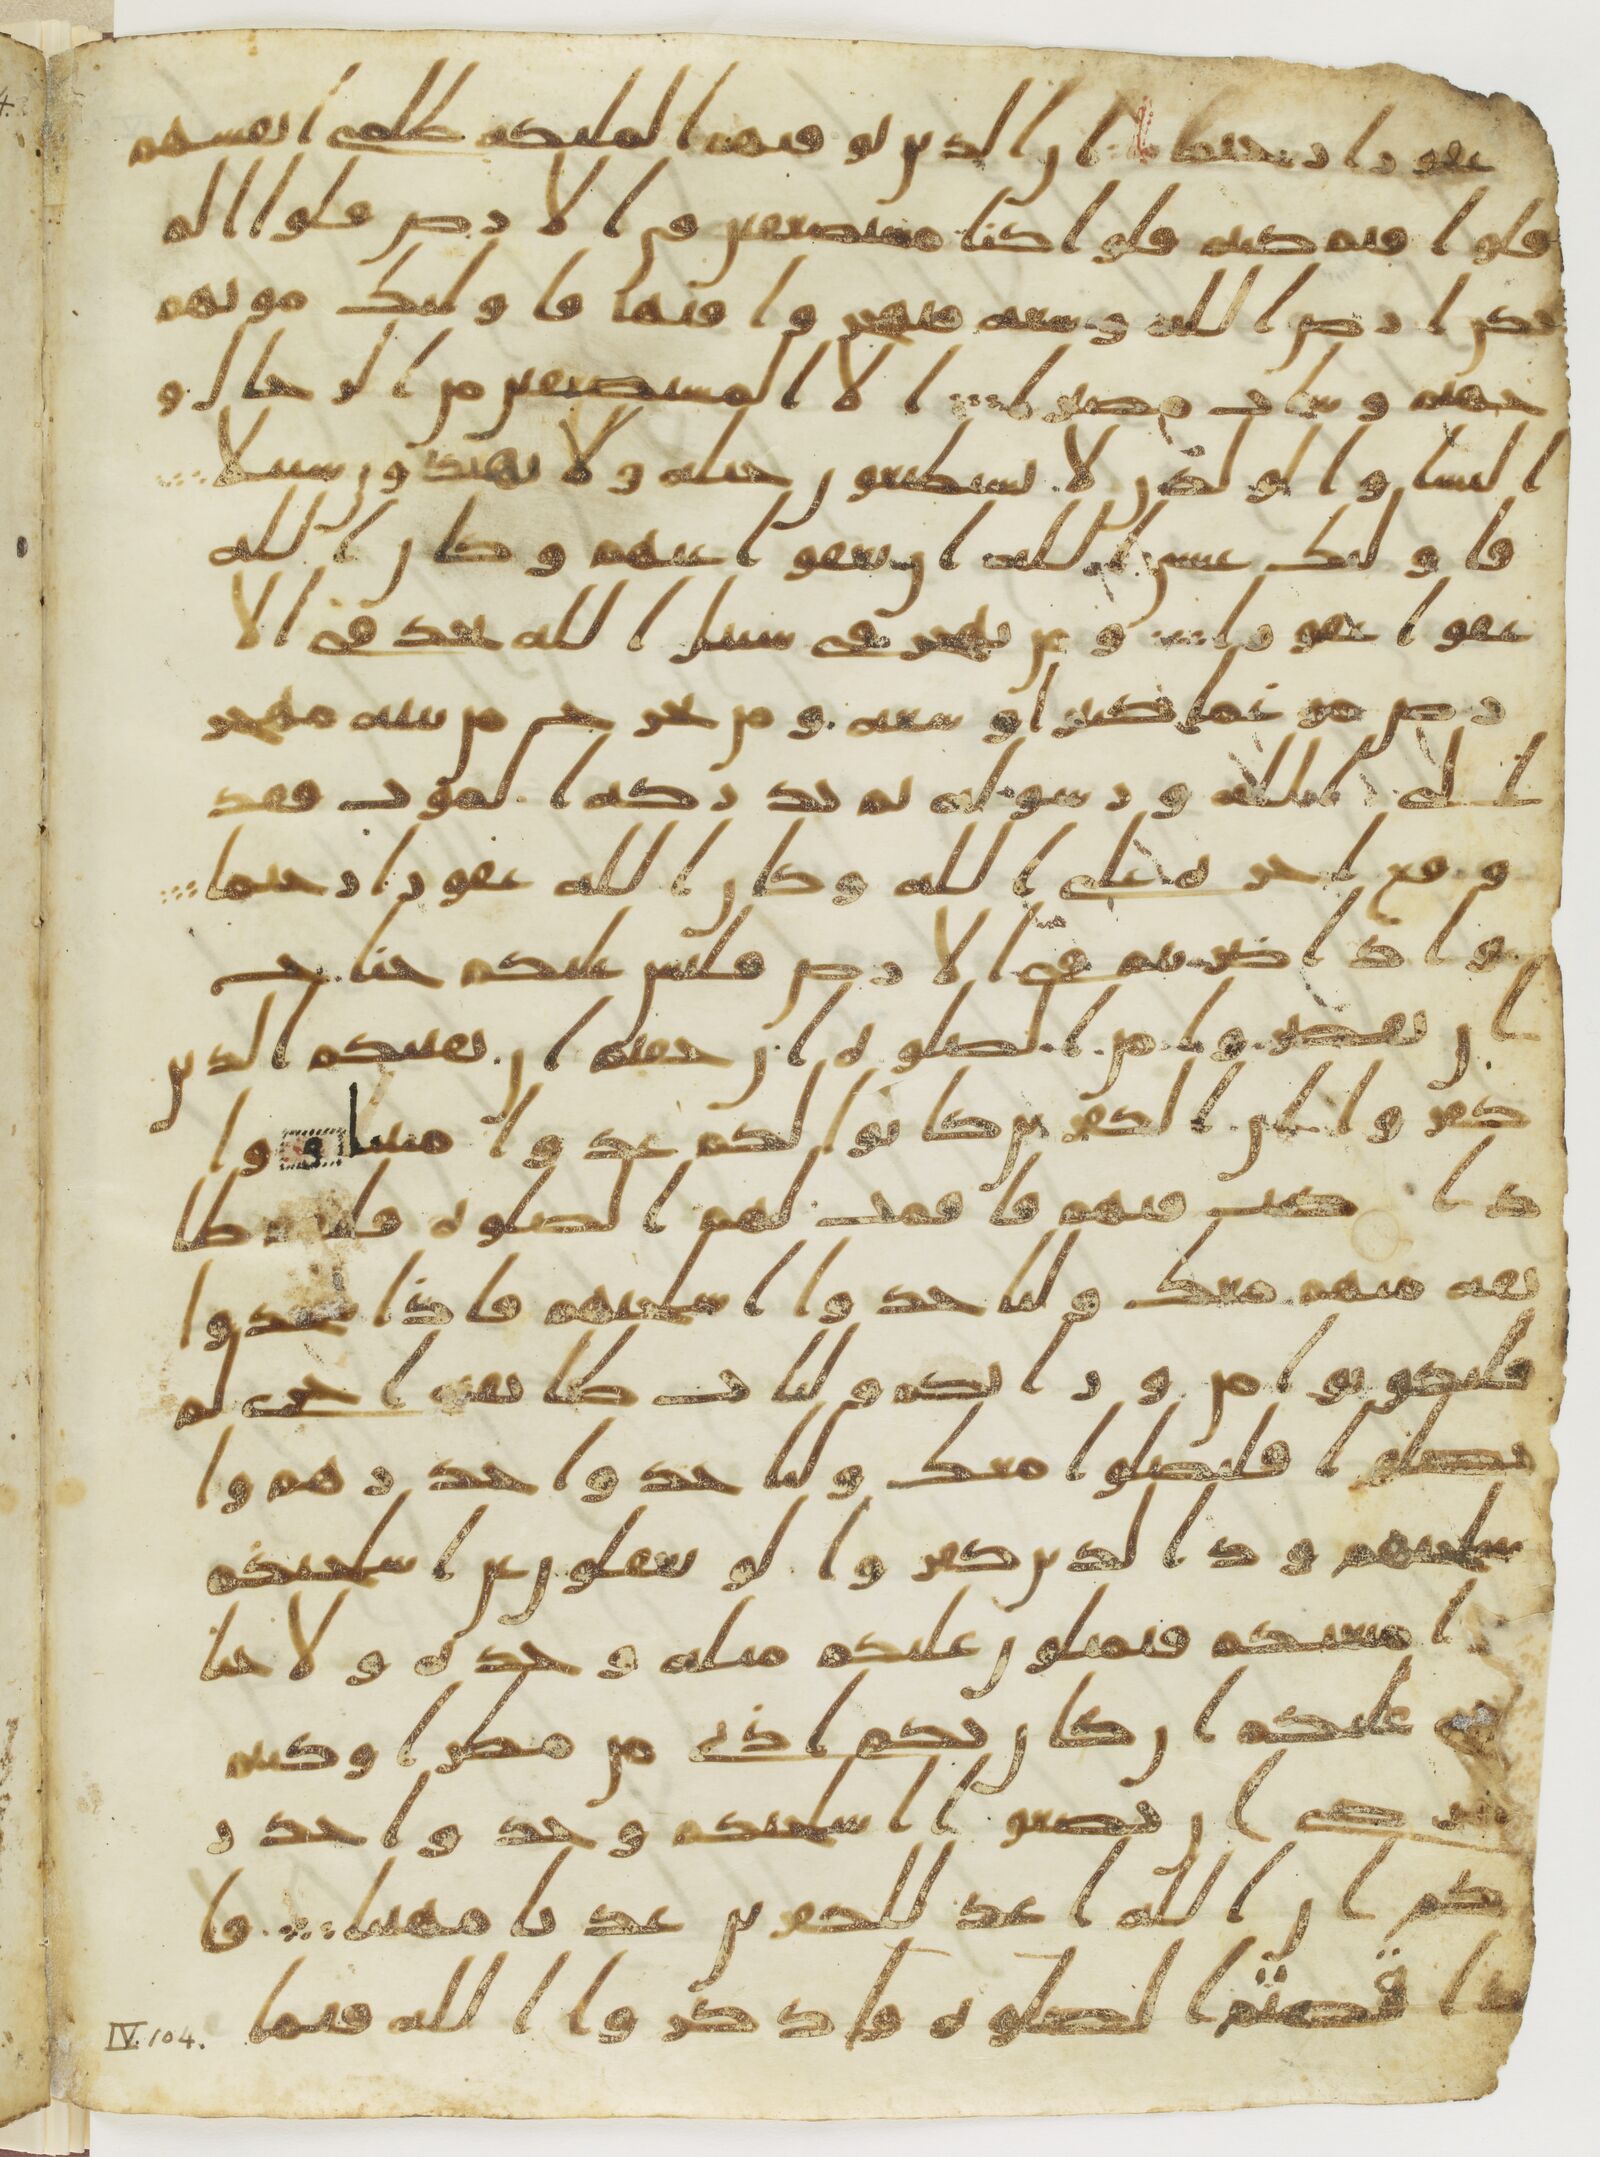 غفورا رحيما ان الذين توفيهم المليكه ظلمى انفسهم
قلوا فيم كنتم قلوا كنا مستضعفين فى الارض قلوا الم
تكن ارض الله وسعه فتهجروا فيها فاوليك ماويهم
جهنم وسات مصيرا الا المستضعفين من الرجال و
النسا والولدن لا يستطيعون حيله ولا يهتدون سبيلا
فاوليك عسى الله ان يعفوا عنهم وكان الله
عفوا غفورا ومن يهجر فى سبيل الله يجد فى الا
رض مرغما كثيرا وسعه ومن يخرج من بيته مهجرا
الى الله ورسوله ثم يدركه الموت فقد
وقع اجره على الله وكان الله غفورا رحيما
واذا ضربتم فى الارض فليس عليكم جناح
ان تقصروا من الصلوه ان خفتم ان يفتنكم الذين
كفروا ان الكفرين كانوا لكم عدوا مبينا وا
ذا كنت فيهم فاقمت لهم الصلوه فلتقم طا
يفه منهم معك ولياخذوا اسلحتهم فاذا سجدوا
فليكونوا من وراىكم ولتات طايفه اخرى لم
يصلوا فليصلوا معك ولياخذوا حذرهم وا
سلحتهم ود الذين كفروا لو تغفلون عن اسلحتكم
وامتعتكم فيميلون عليكم ميله وحده ولا جنا
ح عليكم ان كان بكم اذى من مطر او كنتم
مرضى ان تضعوا اسلحتكم وخذوا حذر
كم ان الله اعد للكفرين عذابا مهينا فا
ذا قضيتم الصلوه فاذكروا الله قيما
IV.104.